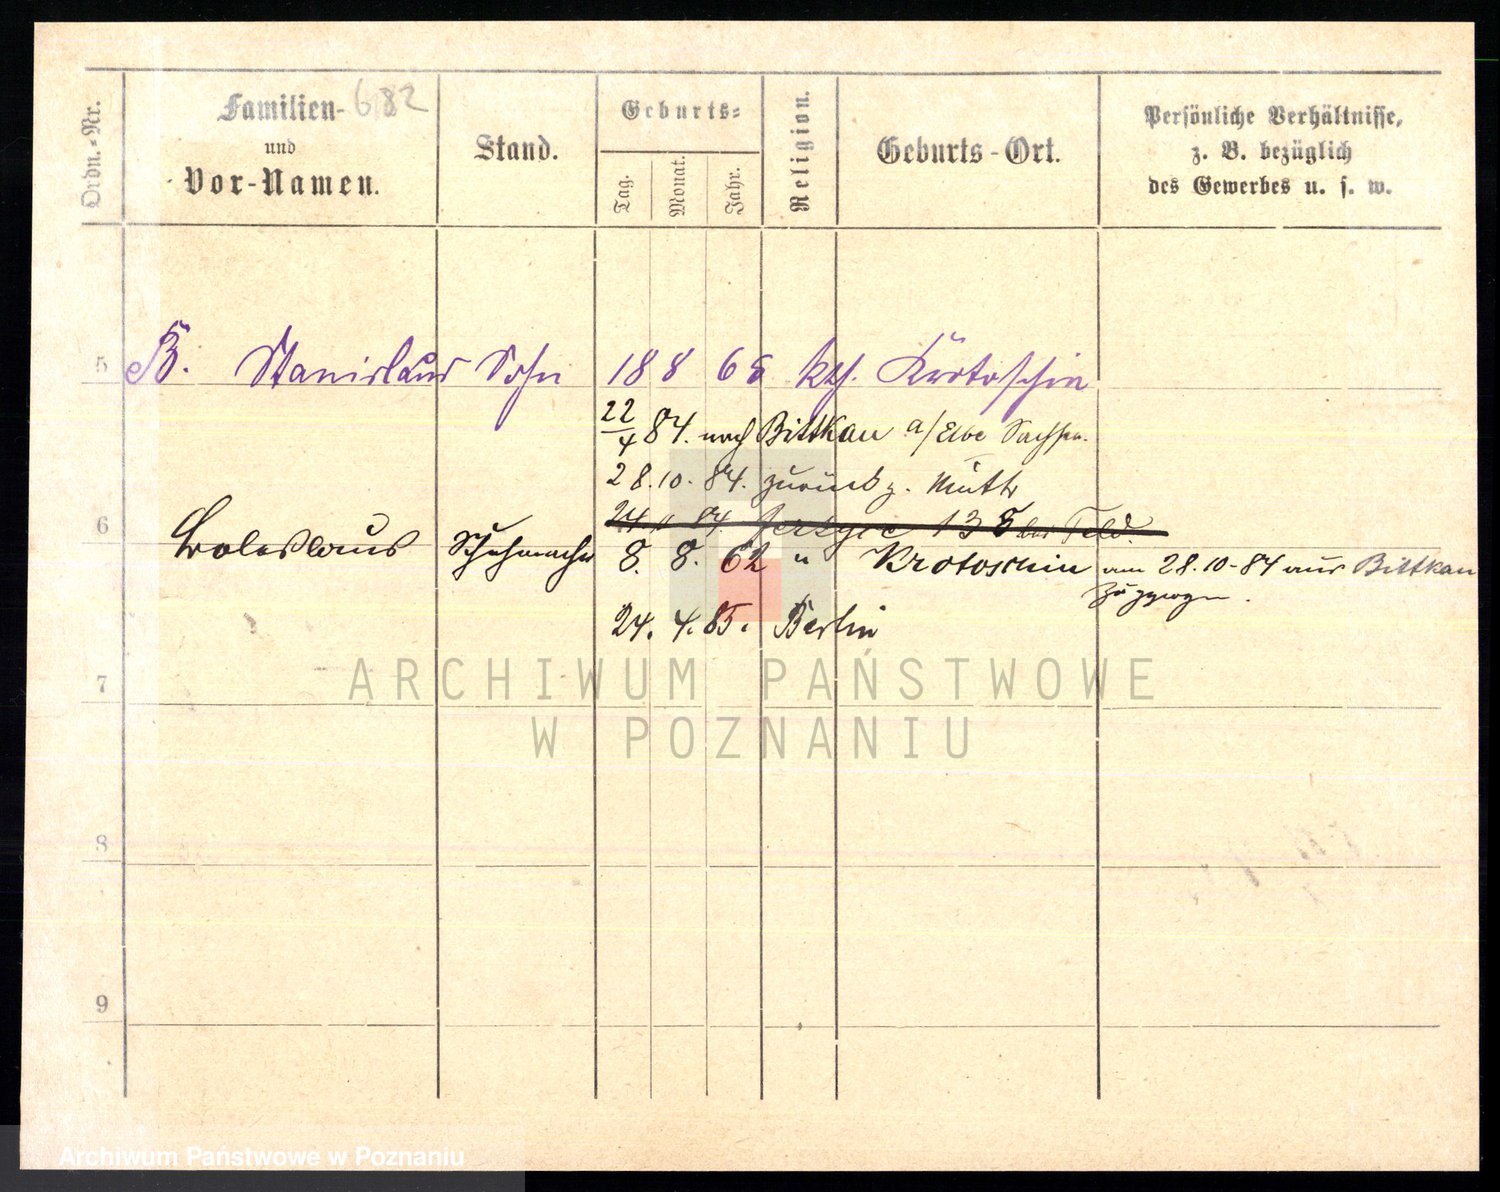 Ordn.-Nr.
Familien- 682
und
Vor-Namen.
Stand.
Geburts-
Tag.
Monat.
Jahr.
Religion.
Geburts-Ort.
Persönliche Verhältnisse,
z. B. bezüglich
des Gewerbes u. s. w.
5 B. Stanislaus Sohn 18 8 65 kth. Krotoschin
22/4 84. nach Bittkau a/Elbe Sachsen.
28.10.84. zurück z. Mutter
24 11 84 Jerzyce 135 bei Feld.
6 Boleslaus Schuhmacher 8. 8. 62 " Krotoschin am 28.10-84 aus Bittkau
zugezogen.
24. 4. 85. Berlin
7
8
9
ARCHIWUM PAŃSTWOWE
W POZNANIU
Archiwum Państwowe w Poznaniu